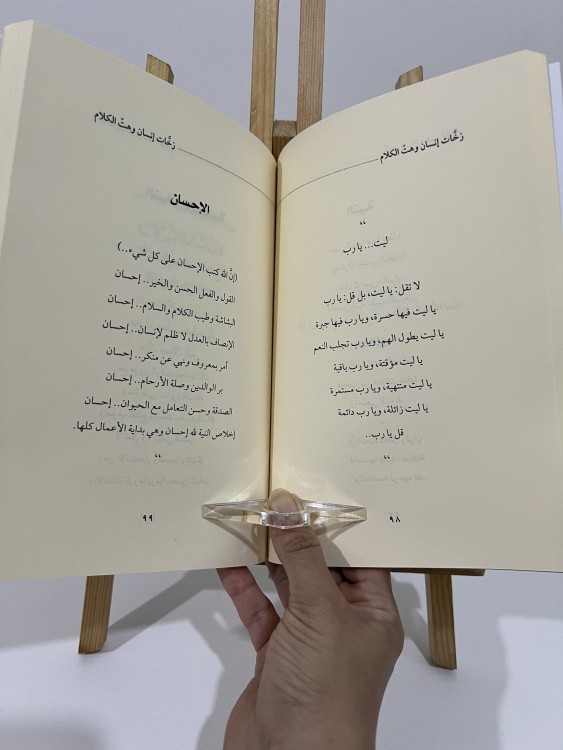 زخَّات إنسان وهتّ الكلام
“
ليت... يا رب
لا تقل: يا ليت، بل قل: يا رب
يا ليت فيها حسرة، ويا رب فيها جبرة
يا ليت يطول الهم، ويا رب تجلب النعم
يا ليت مؤقتة، ويا رب باقية
يا ليت منتهية، ويا رب مستمرة
يا ليت زائلة، ويا رب دائمة
قل يا رب..
“
٩٨
زخَّات إنسان وهتّ الكلام
الإحسان
(إنَّ الله كتب الإحسان على كل شيء..)
القول والفعل الحسن والخير.. إحسان
البشاشة وطيب الكلام والسلام.. إحسان
الإنصاف بالعدل لا ظلم لإنسان.. إحسان
أمر بمعروف ونهي عن منكر.. إحسان
بر الوالدين وصلة الأرحام.. إحسان
الصدقة وحسن التعامل مع الحيوان.. إحسان
إخلاص النية لله إحسان وهي بداية الأعمال كلها.
“
٩٩